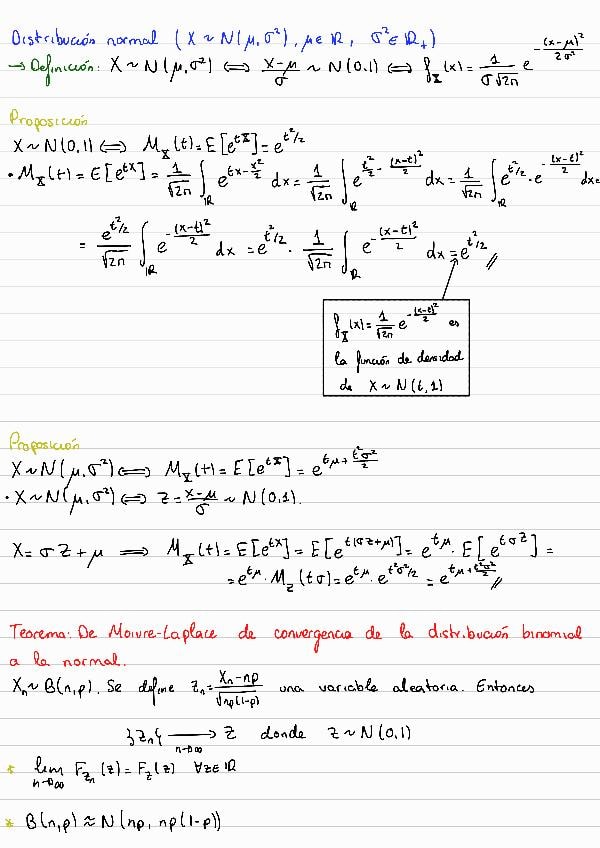 Distribución normal (X ~ N(μ,σ²), μ∈ℝ, σ²∈ℝ₊)
→ Definición: X ~ N(μ,σ²) ⟺ (x-μ)/σ ~ N(0,1) ⟺ f_X(x) = 1/(σ√(2π)) e^(-(x-μ)²/(2σ²))
Proposición
X ~ N(0,1) ⟺ M_X(t) = E[e^(tX)] = e^(t²/2)
• M_X(t) = E[e^(tX)] = 1/√(2π) ∫_ℝ e^(tx - x²/2) dx = 1/√(2π) ∫_ℝ e^(t²/2 - (x-t)²/2) dx = 1/√(2π) ∫_ℝ e^(t²/2) · e^(-(x-t)²/2) dx =
= e^(t²/2)/√(2π) ∫_ℝ e^(-(x-t)²/2) dx = e^(t²/2) · 1/√(2π) ∫_ℝ e^(-(x-t)²/2) dx = e^(t²/2) //
f_X(x) = 1/√(2π) e^(-(x-t)²/2) es
la función de densidad
de X ~ N(t,1)
Proposición
X ~ N(μ,σ²) ⟺ M_X(t) = E[e^(tX)] = e^(tμ + t²σ²/2)
• X ~ N(μ,σ²) ⟺ Z = (x-μ)/σ ~ N(0,1).
X = σZ + μ ⟹ M_X(t) = E[e^(tX)] = E[e^(t(σZ+μ))] = e^(tμ) · E[e^(tσZ)] =
= e^(tμ) · M_Z(tσ) = e^(tμ) · e^(t²σ²/2) = e^(tμ + t²σ²/2) //
Teorema: De Moivre-Laplace de convergencia de la distribución binomial
a la normal.
X_n ~ B(n,p). Se define Z_n = (X_n - np)/√(np(1-p)) una variable aleatoria. Entonces
{Z_n} ⟶_(n→∞) Z donde Z ~ N(0,1)
* lim_(n→∞) F_(Z_n)(z) = F_Z(z) ∀z∈ℝ
* B(n,p) ≈ N(np, np(1-p))